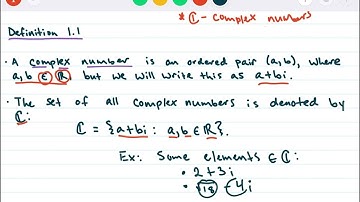 * ℂ - complex numbers
Definition 1.1
• A complex number is an ordered pair (a,b), where
a,b ∈ ℝ, but we will write this as a+bi.
• The set of all complex numbers is denoted by
ℂ:
ℂ = {a+bi : a,b ∈ ℝ}.
Ex: Some elements ∈ ℂ:
• 2+3i
• -4i